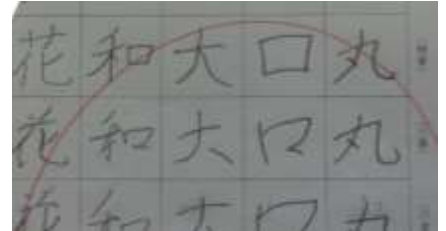 花和大口丸
花和大口丸
花和大口丸